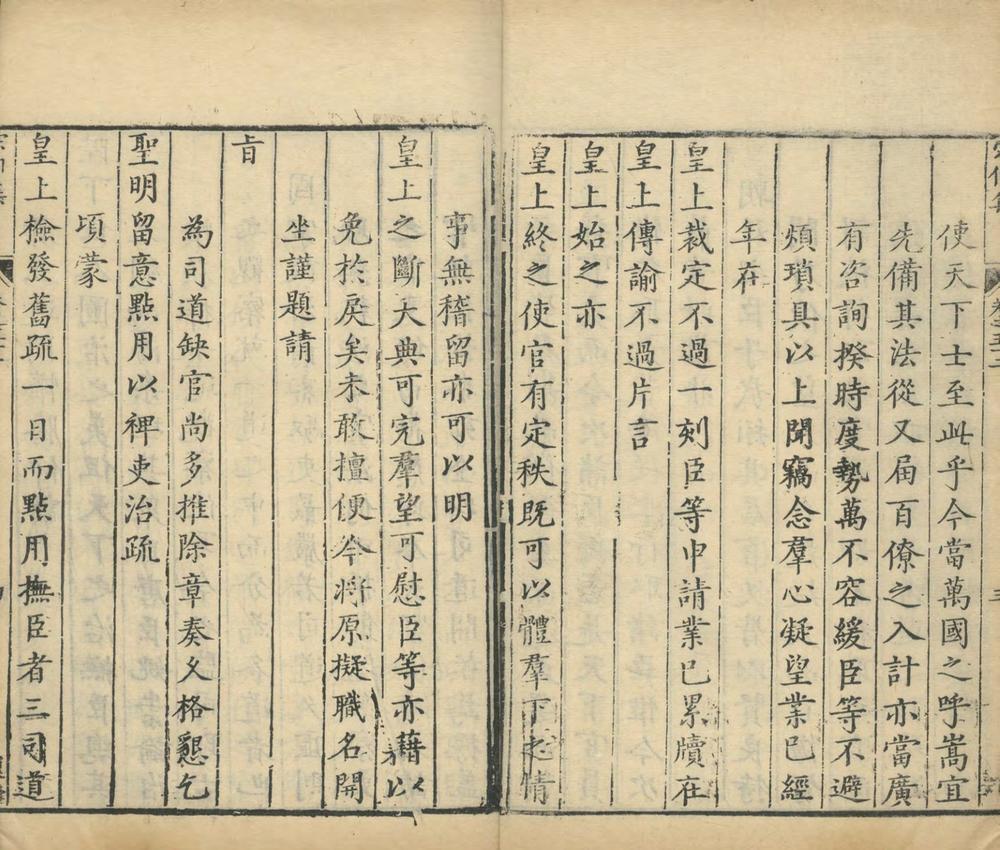 使天下士至此乎今當萬國之呼嵩宜
先備其法從又届百僚之入計亦當廣
有咨詢揆時度勢萬不容緩臣等不避
煩瑣具以上聞竊念羣心凝望業已經
年在
皇上裁定不過一刻臣等申請業已累牘在
皇上傳諭不過片言
皇上始之亦
皇上終之使官有定秩既可以體羣下之情
事無稽留亦可以明
皇上之斷大典可完羣望可慰臣等亦藉以
免於戾矣未敢擅便今將原擬職名開
坐謹題請
旨
為司道缺官尚多推除章奏久格懇乞
聖明留意點用以裨吏治疏
頃蒙
皇上檢發舊疏一日而點用撫臣者三司道